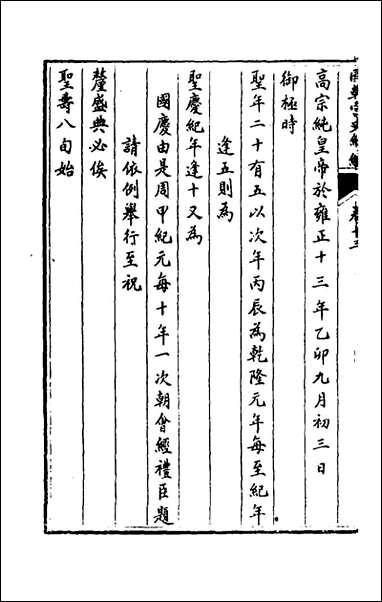 國朝宮史續編 卷十三
高宗純皇帝於雍正十三年乙卯九月初三日
御極時
聖年二十有五以次年丙辰為乾隆元年每至紀年
逢五則為
聖慶紀年逢十又為
國慶由是周甲紀元每十年一次朝會經禮臣題
請依例舉行至祝
釐盛典必俟
聖壽八旬始